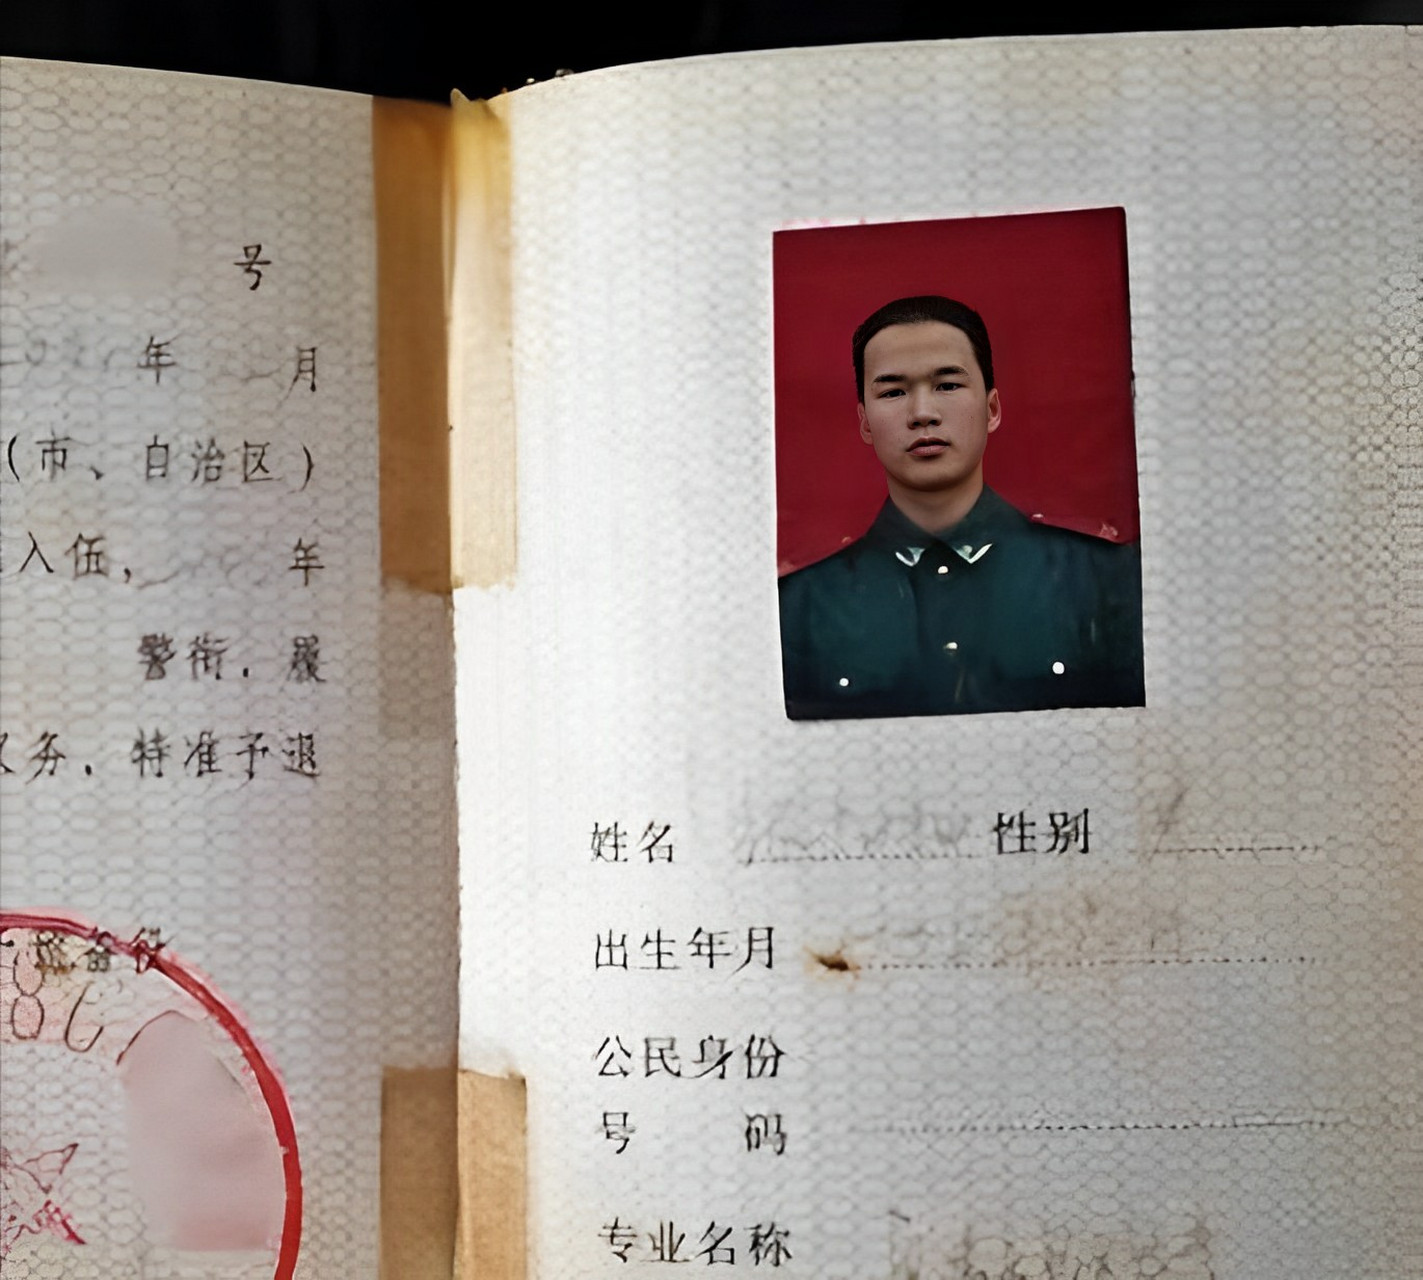 号
年 月
（市、自治区）
入伍， 年
警衔，履
务，特准予退
备役
姓名 性别
出生年月
公民身份
号 码
专业名称